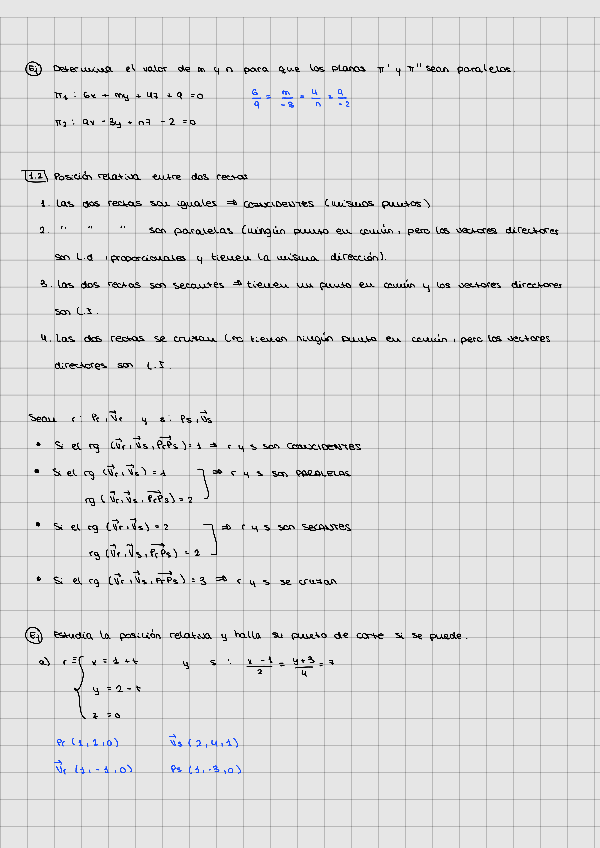 Ej Determina el valor de m y n para que los planos π' y π'' sean paralelos.
π₁ : 6x + my + 4z + 9 = 0 6/9 = m/-3 = 4/n = 9/-2
π₂ : 9x - 3y + nz - 2 = 0
1.2 Posición relativa entre dos rectas
1. Las dos rectas son iguales ⇒ COINCIDENTES (mismos puntos)
2. " " " son paralelas (ningún punto en común, pero los vectores directores
son L.d, proporcionales y tienen la misma dirección).
3. Las dos rectas son secantes ⇒ tienen un punto en común y los vectores directores
son L.I.
4. Las dos rectas se cruzan (no tienen ningún punto en común, pero los vectores
directores son L.I.
Sean r: Pr, V⃗r y s: Ps, V⃗s
• Si el rg (V⃗r, V⃗s, PrPs⃗) = 1 ⇒ r y s son COINCIDENTES
• Si el rg (V⃗r, V⃗s) = 1 ⇒ r y s son PARALELAS
rg (V⃗r, V⃗s, PrPs⃗) = 2
• Si el rg (V⃗r, V⃗s) = 2 ⇒ r y s son SECANTES
rg (V⃗r, V⃗s, PrPs⃗) = 2
• Si el rg (V⃗r, V⃗s, PrPs⃗) = 3 ⇒ r y s se cruzan
Ej Estudia la posición relativa y halla su punto de corte si se puede.
a) r ≡ { x = 1 + t y s : x - 1/2 = y + 3/4 = z
y = 2 - t
z = 0
Pr (1, 2, 0) V⃗s (2, 4, 1)
V⃗r (1, -1, 0) Ps (1, -3, 0)